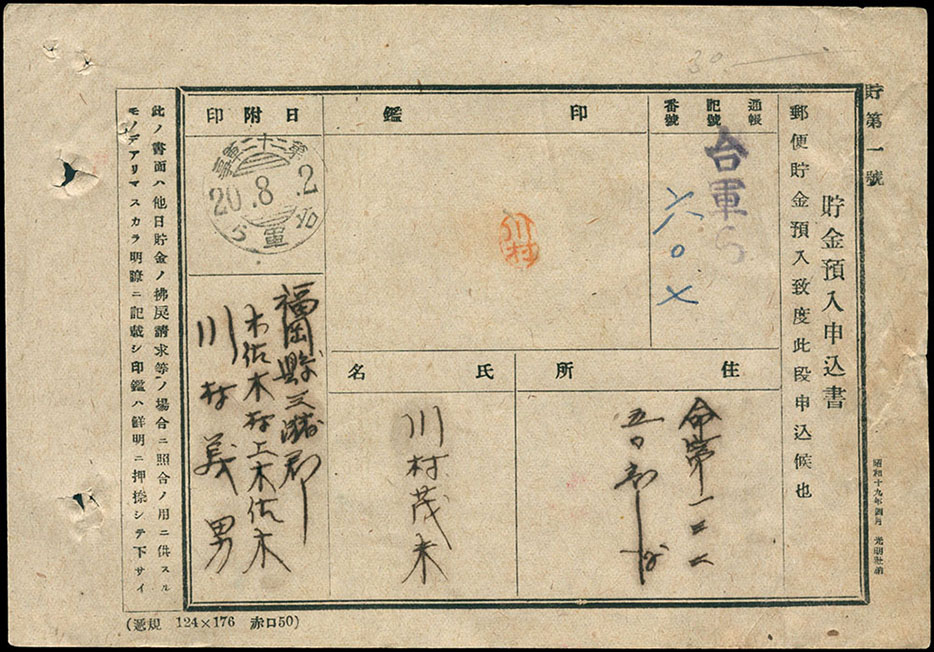 貯第一號
貯金預入申込書
郵便貯金預入致度此段申込候也
昭和十九年四月
通帳
記號
番號
台軍ら
六〇
印鑑
川村
日附印
20.8.2
住所
五〇
氏名
川村茂
福岡縣三潴郡
木佐木村上木佐木
川村義男
此ノ書面ハ他日貯金ノ拂戾請求等ノ場合ニ照合ノ用ニ供スル
モノデアリマスカラ明瞭ニ記載シ印鑑ハ鮮明ニ押捺シテ下サイ
(遞規 124×176 赤口50)
30